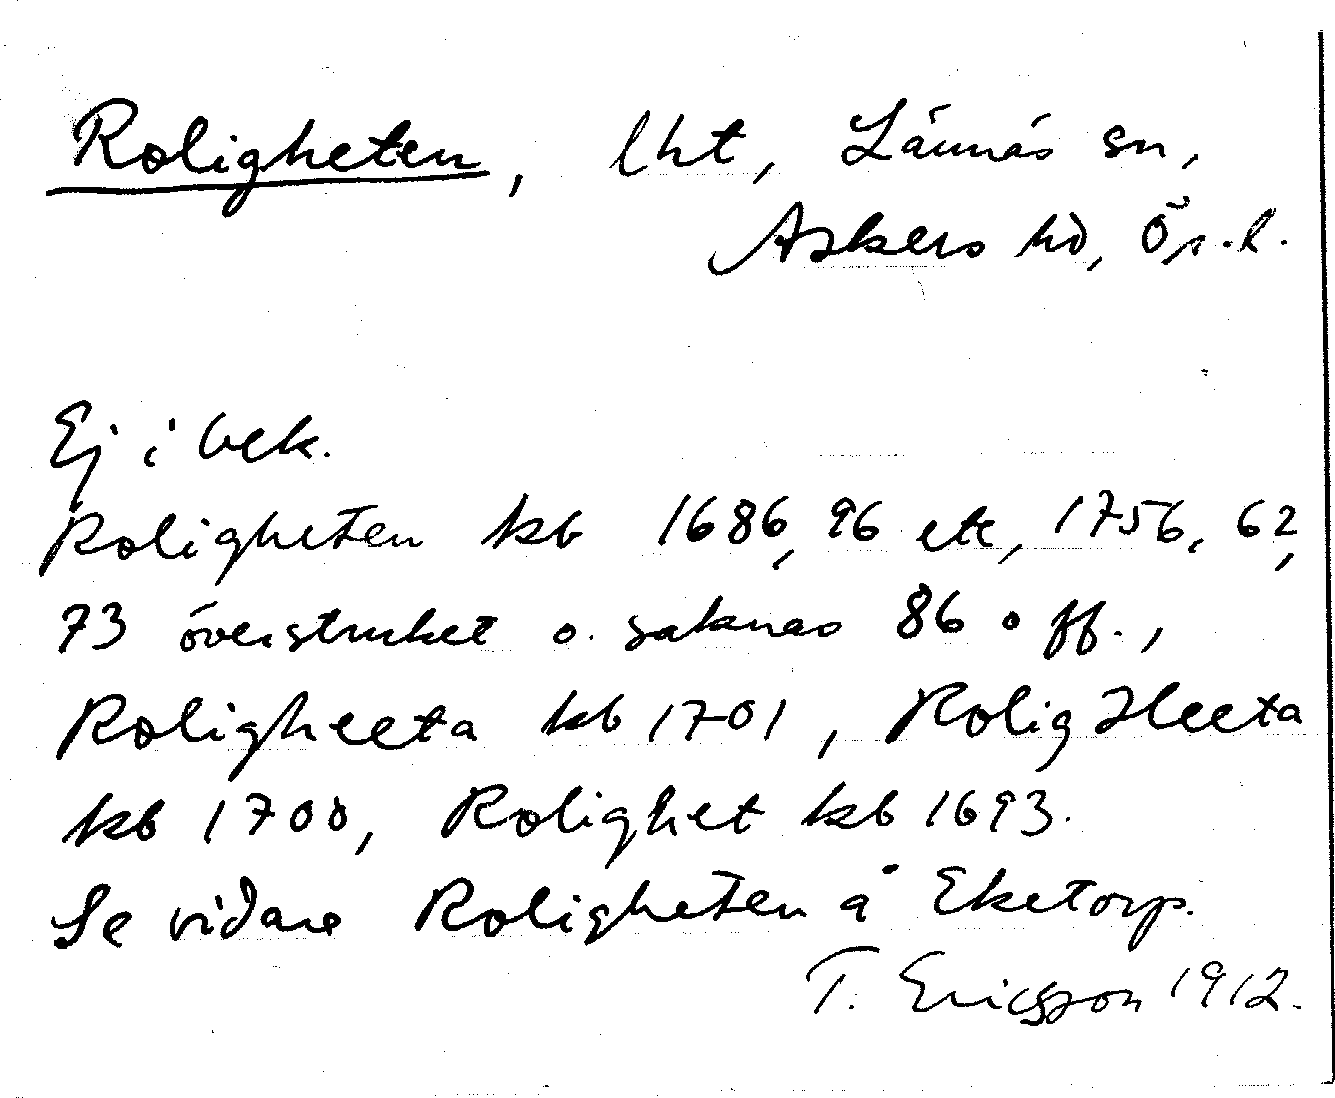 Roligheten, lht, Lännäs sn,
Askers hd, Ör. l.
Ej i bek.
Roligheten kb 1686, 96 etc, 1756, 62,
73 överstruket o. saknas 86 o ff.,
Roligheeta kb 1701, Rolig Heeta
kb 1700, Rolighet kb 1693.
Se vidare Roligheten å Eketorp.
T. Ericsson 1912.